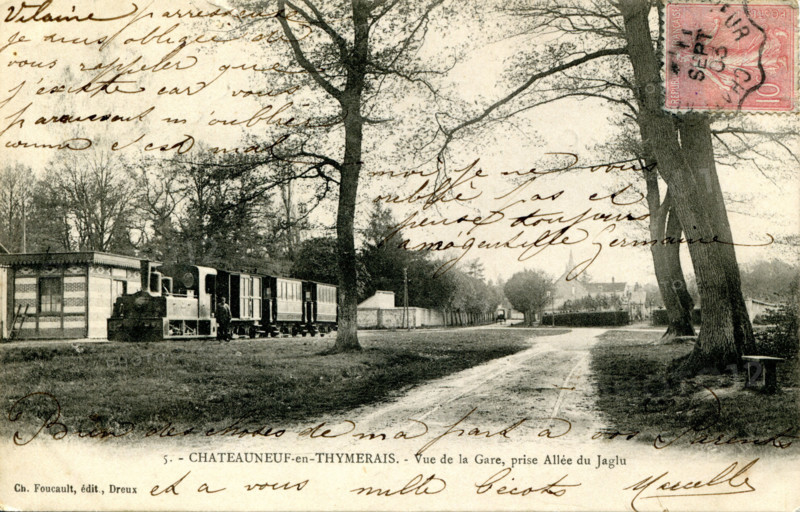 Vilaine paresseuse
je suis obligée de
vous rappeler que
j'existe car vous
paraissent m'oublier
comme c'est mal
moi je ne vous
oublie pas et
pense toujours
à ma gentille Germaine
SEPT
03
10
Bien des choses de ma part à vos Parents
5. - CHATEAUNEUF-en-THYMERAIS. - Vue de la Gare, prise Allée du Jaglu
Ch. Foucault, édit., Dreux
et à vous mille bécots Marcelle